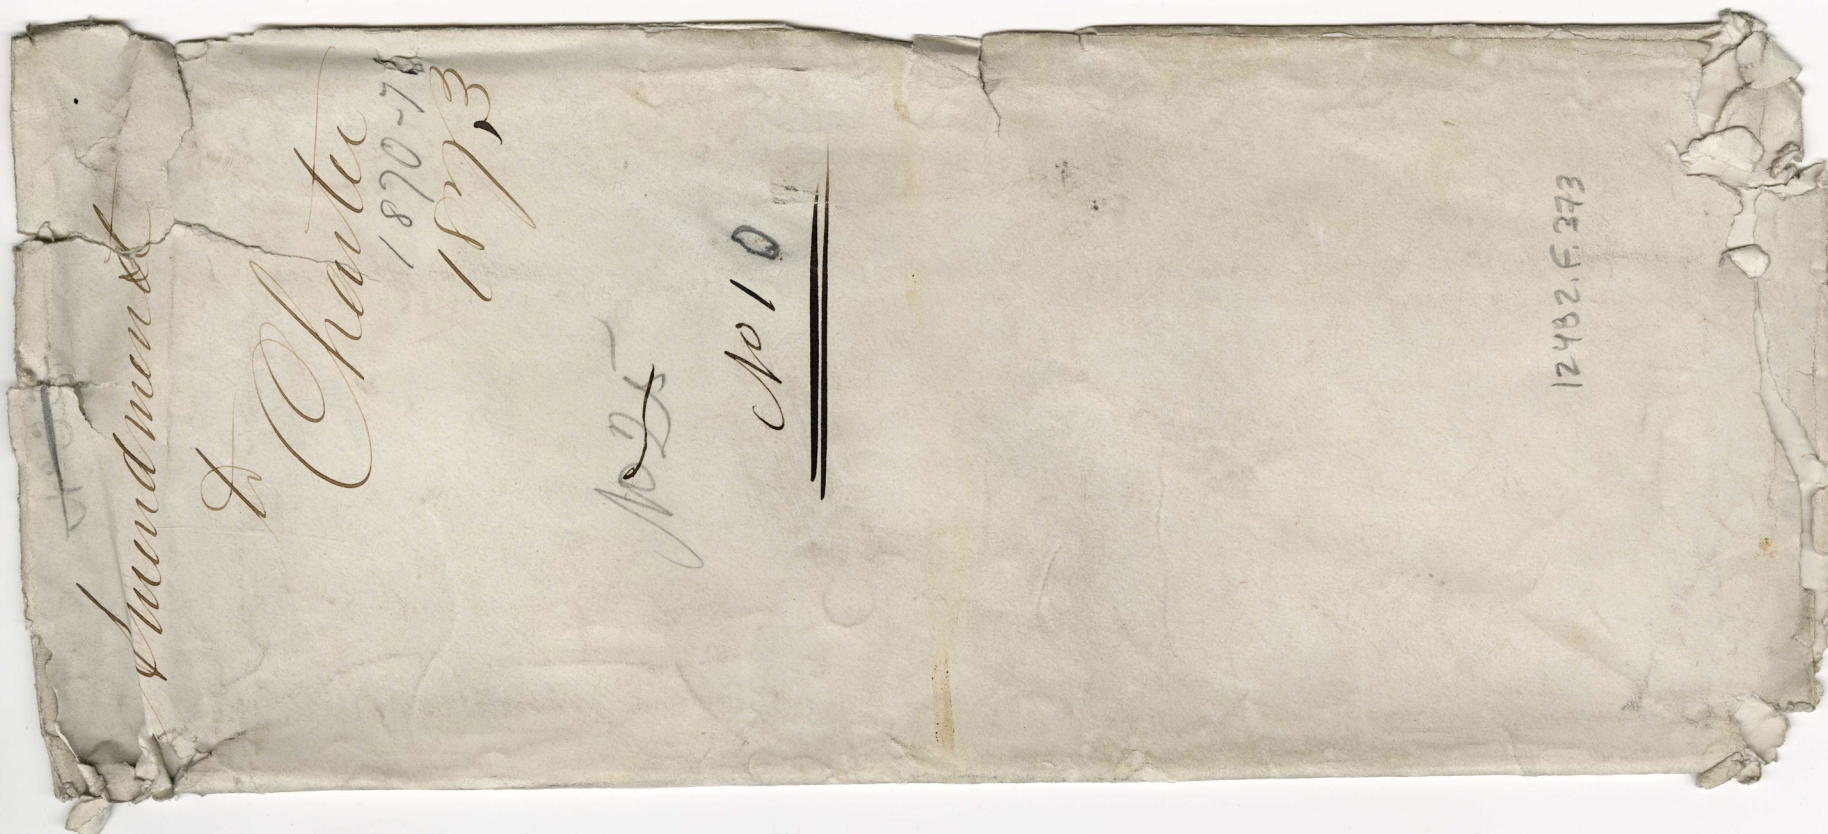 Amendment
to
Charter
1870-7
1873
No 25
No 10
12482.F.373